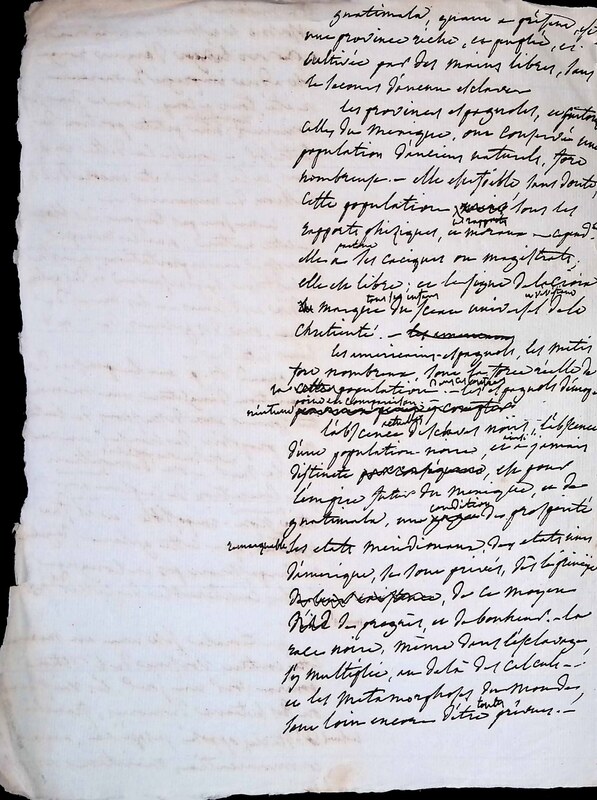 guatimala, qui a présent, est
une province riche, et peuplée, et
cultivée par des mains libres, sans
le secours d'aucun esclave
les provinces espagnoles, et surtout
celles du mexique, ont conservé une
population d'anciens naturels, fort
nombreuse — elle est faible sans doute,
cette population sous les
rapports phisiques, et moraux —
elle a ses caciques ou magistrats;
elle est libre; et le signe de la croix
marque du sceau universel de la
chretienté. —
les américains-espagnols, les métis
fort nombreux, sont la force réelle de
sa population — les espagnols d'europe
pour en comparaison
l'absence d'esclaves noirs, l'absence
d'une population noire, et à jamais
distincte, est pour
l'empire futur du mexique, et de
guatimala, une condition de prosperité
remarquable les etats meridionaux, des etats unis
d'amerique, se sont privés, dès l'origine
de ce moyen
de progrès, et de bonheur. — la
race noire, même dans l'esclavage,
s'y multiplie, au delà des calculs —
et les metamorphoses du monde,
sont loin encore d'être toutes prévues. —